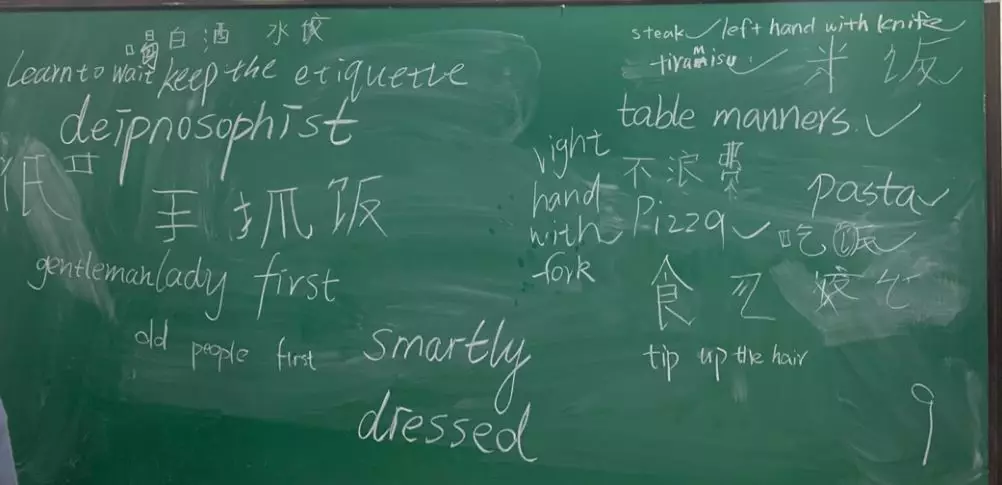 喝白酒 水饺
Learn to wait keep the etiquette
deipnosophist
手抓饭
gentleman lady first
old people first
smartly
dressed
steak ✓ left hand with knife
tiramisu ✓
米饭
table manners. ✓
right
hand
with
fork
不浪费
Pizza ✓
pasta ✓
吃饭
食
tip up the hair